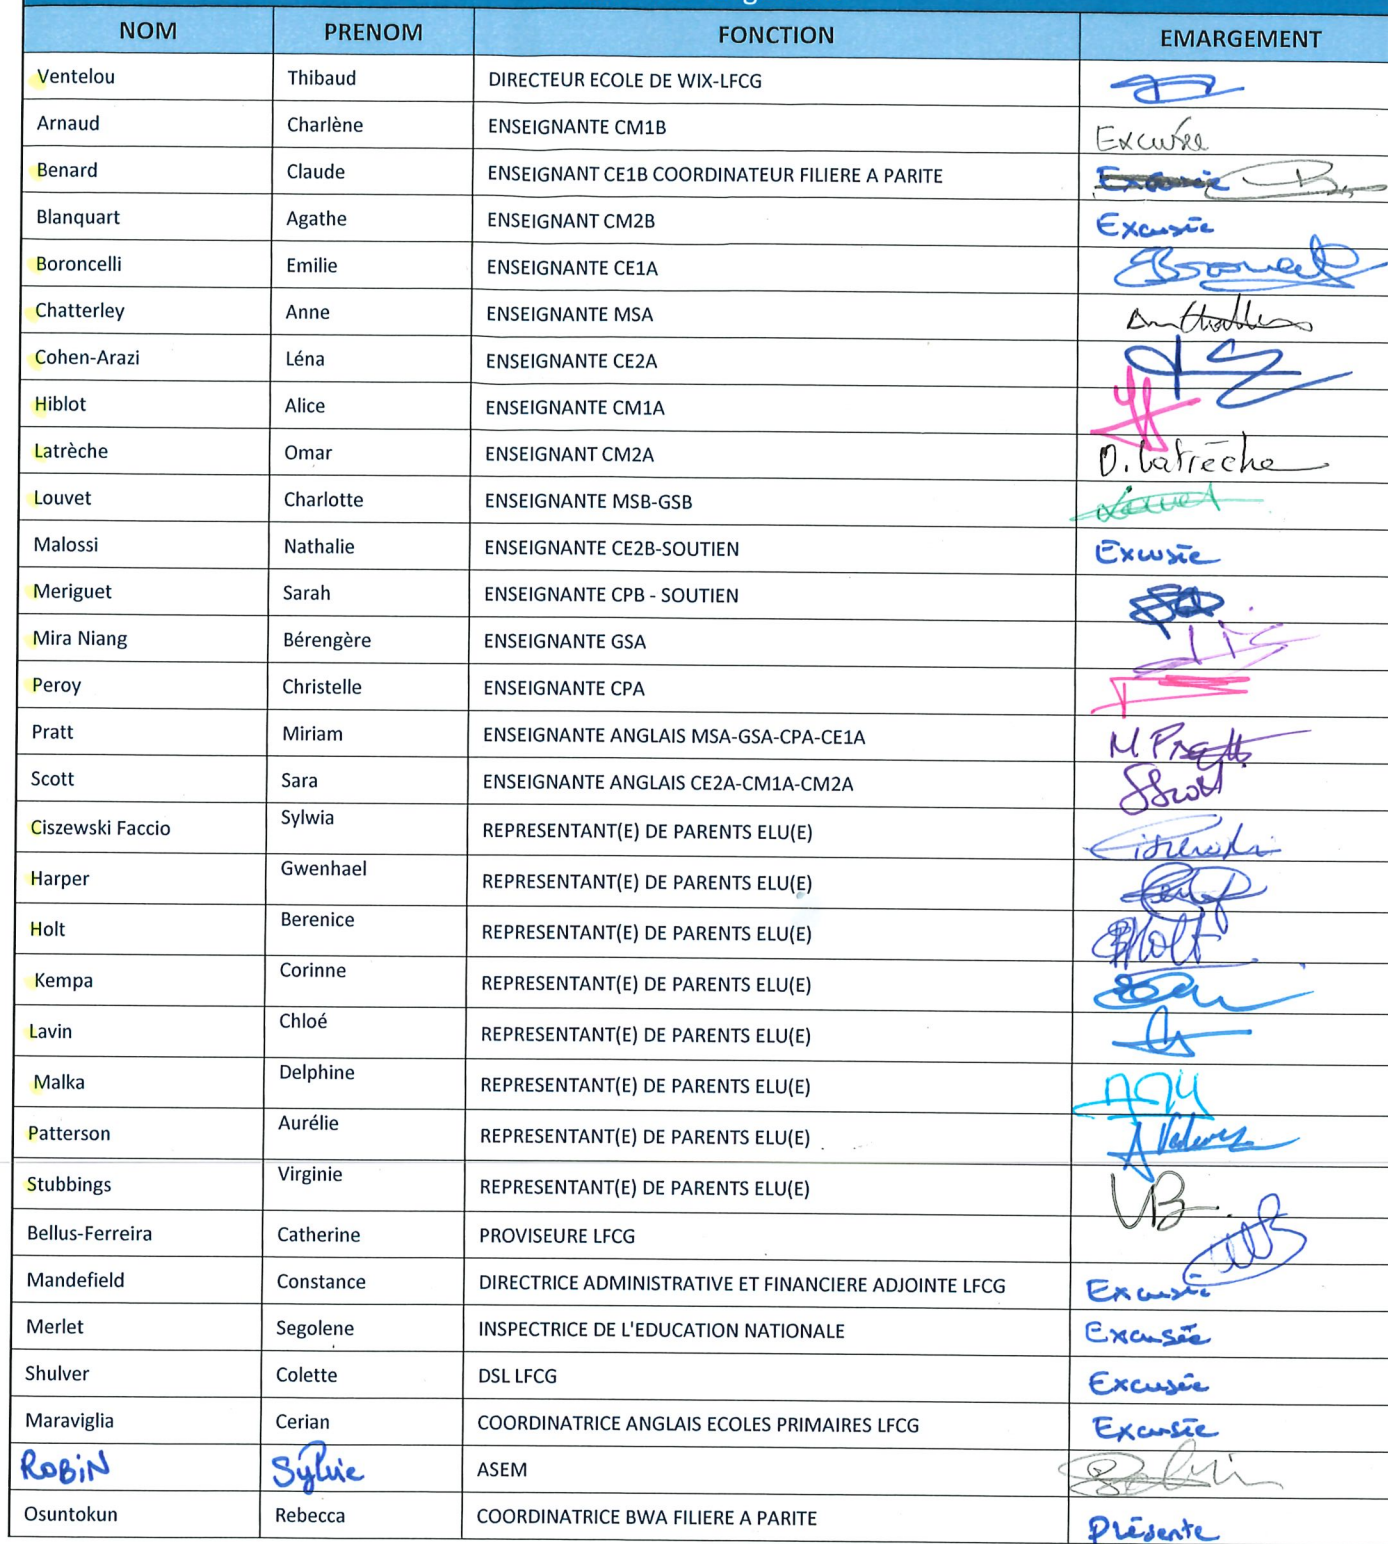 NOM PRENOM FONCTION EMARGEMENT
Ventelou Thibaud DIRECTEUR ECOLE DE WIX-LFCG
Arnaud Charlène ENSEIGNANTE CM1B Excusée
Benard Claude ENSEIGNANT CE1B COORDINATEUR FILIERE A PARITE Excusée
Blanquart Agathe ENSEIGNANT CM2B Excusée
Boroncelli Emilie ENSEIGNANTE CE1A
Chatterley Anne ENSEIGNANTE MSA
Cohen-Arazi Léna ENSEIGNANTE CE2A
Hiblot Alice ENSEIGNANTE CM1A
Latrèche Omar ENSEIGNANT CM2A O. Latrèche
Louvet Charlotte ENSEIGNANTE MSB-GSB Louvet
Malossi Nathalie ENSEIGNANTE CE2B-SOUTIEN Excusée
Meriguet Sarah ENSEIGNANTE CPB - SOUTIEN
Mira Niang Bérengère ENSEIGNANTE GSA
Peroy Christelle ENSEIGNANTE CPA
Pratt Miriam ENSEIGNANTE ANGLAIS MSA-GSA-CPA-CE1A M Pratt
Scott Sara ENSEIGNANTE ANGLAIS CE2A-CM1A-CM2A SScott
Ciszewski Faccio Sylwia REPRESENTANT(E) DE PARENTS ELU(E)
Harper Gwenhael REPRESENTANT(E) DE PARENTS ELU(E)
Holt Berenice REPRESENTANT(E) DE PARENTS ELU(E) BHolt
Kempa Corinne REPRESENTANT(E) DE PARENTS ELU(E)
Lavin Chloé REPRESENTANT(E) DE PARENTS ELU(E)
Malka Delphine REPRESENTANT(E) DE PARENTS ELU(E)
Patterson Aurélie REPRESENTANT(E) DE PARENTS ELU(E)
Stubbings Virginie REPRESENTANT(E) DE PARENTS ELU(E)
Bellus-Ferreira Catherine PROVISEURE LFCG
Mandefield Constance DIRECTRICE ADMINISTRATIVE ET FINANCIERE ADJOINTE LFCG Excusée
Merlet Segolene INSPECTRICE DE L'EDUCATION NATIONALE Excusée
Shulver Colette DSL LFCG Excusée
Maraviglia Cerian COORDINATRICE ANGLAIS ECOLES PRIMAIRES LFCG Excusée
ROBIN Sylvie ASEM
Osuntokun Rebecca COORDINATRICE BWA FILIERE A PARITE Présente